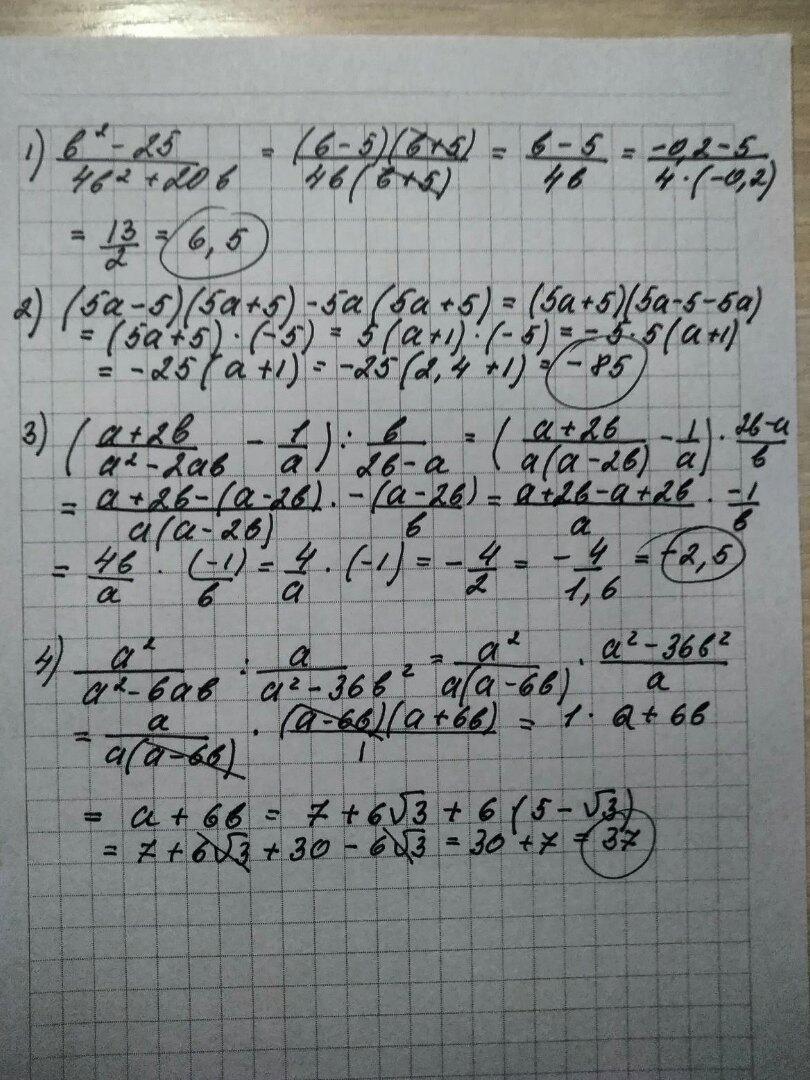 1) (в² - 25)/(4в² + 20в) = ((в - 5)(в + 5))/(4в(в + 5)) = (в - 5)/(4в) = (-0,2 - 5)/(4 · (-0,2))
= 13/2 = 6,5
2) (5a - 5)(5a + 5) - 5a(5a + 5) = (5a + 5)(5a - 5 - 5a)
= (5a + 5) · (-5) = 5(a + 1) · (-5) = - 5 · 5(a + 1)
= -25(a + 1) = -25(2,4 + 1) = -85
3) ((a + 2в)/(a² - 2aв) - 1/a) : в/(2в - a) = ((a + 2в)/(a(a - 2в)) - 1/a) · (2в - a)/в
= (a + 2в - (a - 2в))/(a(a - 2в)) · (-(a - 2в))/в = (a + 2в - a + 2в)/a · (-1)/в
= 4в/a · (-1)/в = 4/a · (-1) = - 4/2 = - 4/1,6 = -2,5
4) a²/(a² - 6aв) : a/(a² - 36в²) = a²/(a(a - 6в)) · (a² - 36в²)/a
= a/(a(a - 6в)) · ((a - 6в)(a + 6в))/1 = 1 · a + 6в
= a + 6в = 7 + 6√3 + 6(5 - √3)
= 7 + 6√3 + 30 - 6√3 = 30 + 7 = 37